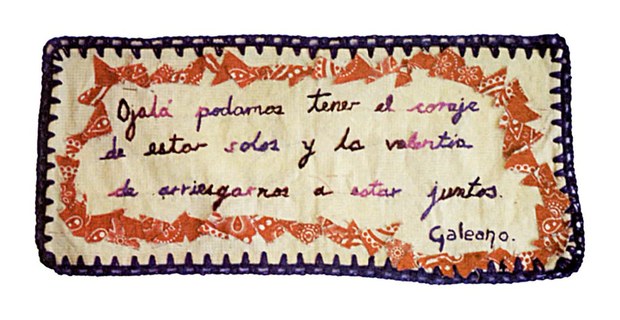 Ojalá podamos tener el coraje
de estar solos y la valentía
de arriesgarnos a estar juntos.
Galeano.